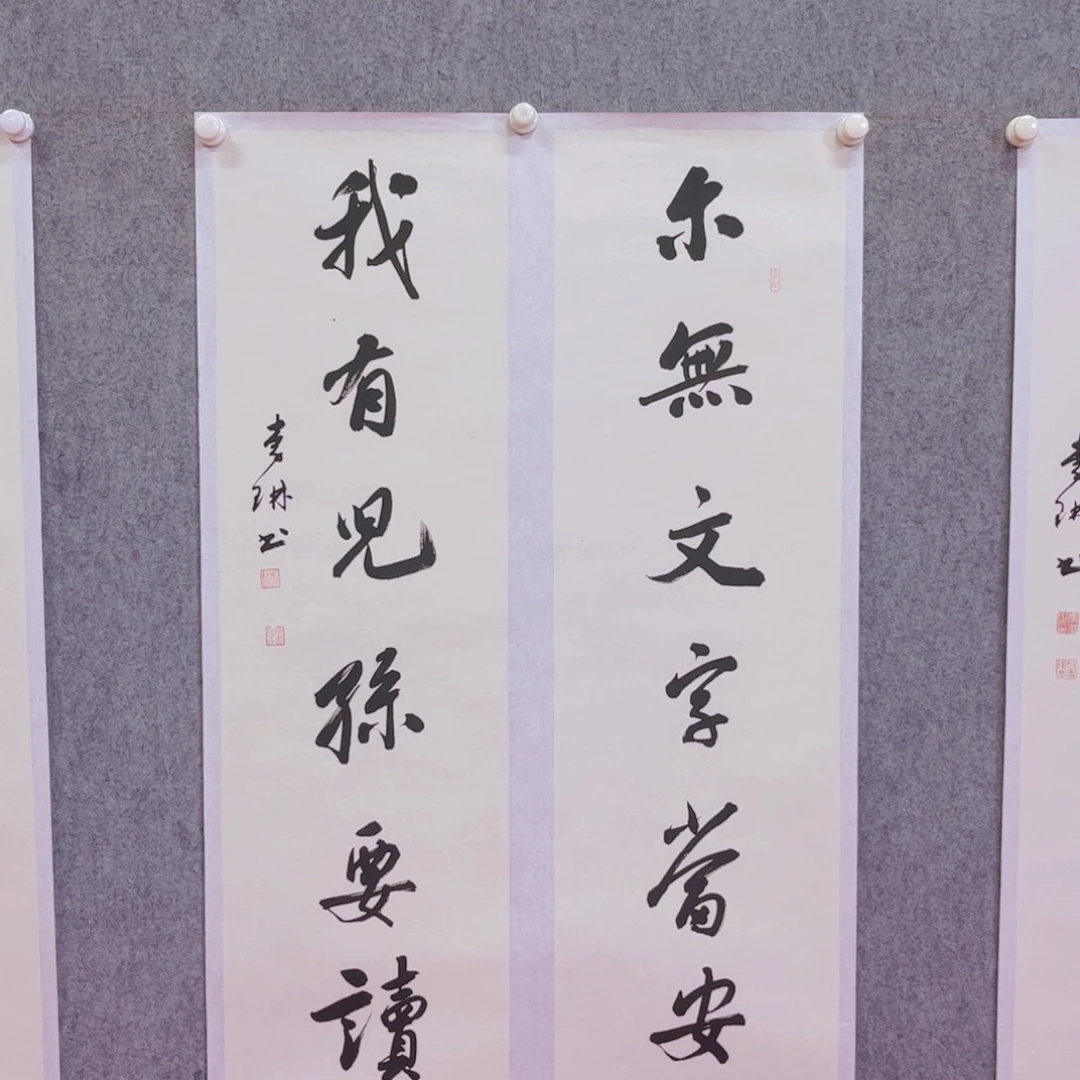 尔無文字當安
我有兒孫要讀
琳书
琳